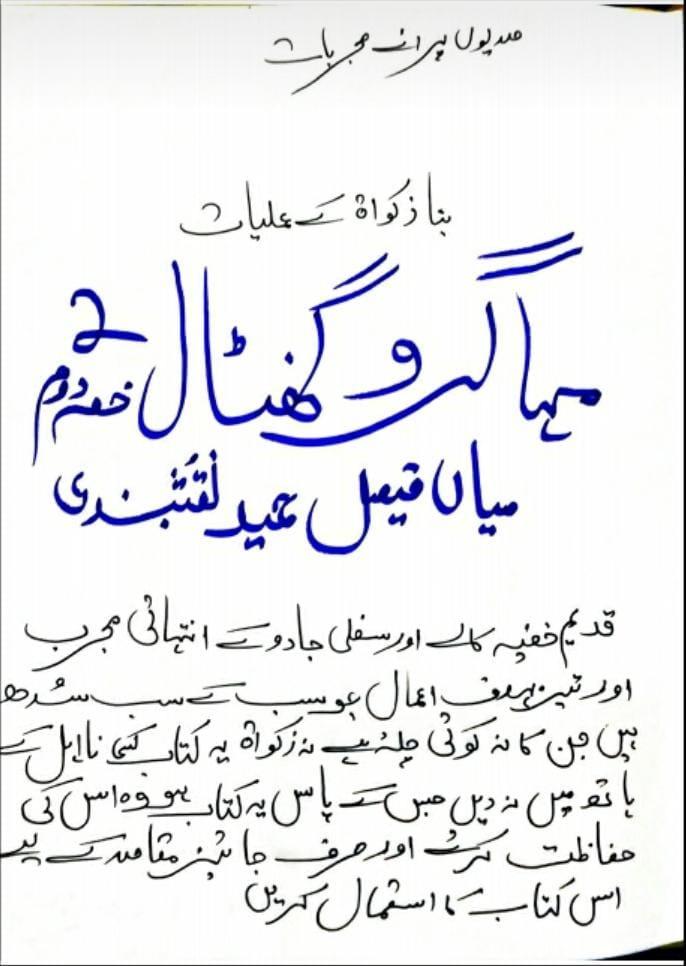 صدیوں پرانے مجربات
بنا زکواۃ کے عملیات
مہا گرو گھنٹال حصہ دوم 2
میاں فیصل حمید نقشبندی
قدیم خفیہ کالے اور سفلی جادو کے انتہائی مجرب
اور تیر بہدف اعمال جو سب کے سب سُدھ
ہیں جن کا نہ کوئی چلہ ہے نہ زکواۃ یہ کتاب کسی نا اہل کے
ہاتھ میں نہ دیں جس کے پاس یہ کتاب ہو وہ اس کی
حفاظت کرے اور صرف جائز مقاصد کے لیے
اس کتاب کا استعمال کریں